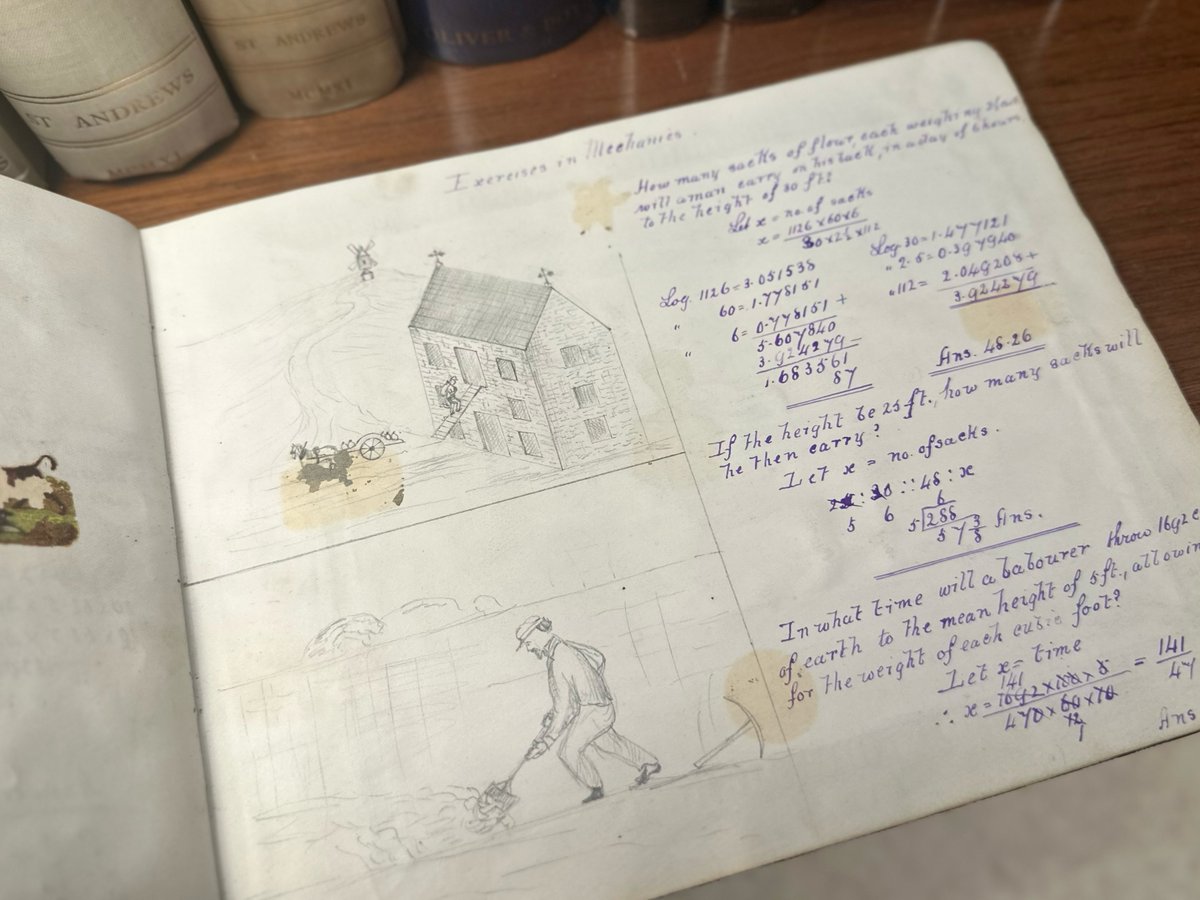 ST ANDREWS
MCMXI
ST ANDREWS
MCMXI
OLIVER &
Exercises in Mechanics.
How many sacks of flour, each weighing
will a man carry on his back, in a day of 6 hours,
to the height of 30 ft?
Let x = no. of sacks
x = 1126 × 60 × 6
30 × 2½ × 112
Log. 1126 = 3.051538
" 60 = 1.778151
" 6 = 0.778151 +
5.607840
3.924279 –
1.683561
87
Log. 30 = 1.477121
" 2.5 = 0.397940
" 112 = 2.049208 +
3.924279
Ans. 48.26
If the height be 25 ft., how many sacks will
he then carry?
Let x = no. of sacks.
25 : 30 :: 48 : x
5 6 6
5 288
57 3/5 Ans.
In what time will a labourer throw 1692
of earth to the mean height of 5 ft.,
for the weight of each cubic foot?
Let x = time
141
∴ x = 1692 × 100 × 5 = 141
470 × 60 × 10 47
12
1
Ans